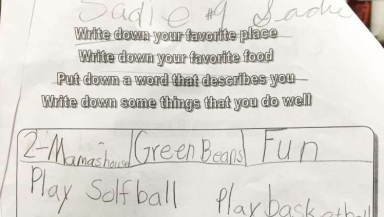 Sadie #9 Sadie
Write down your favorite place
Write down your favorite food
Put down a word that describes you
Write down some things that you do well
2-Mamas house Green Beans Fun
Play Solfball Play basketball